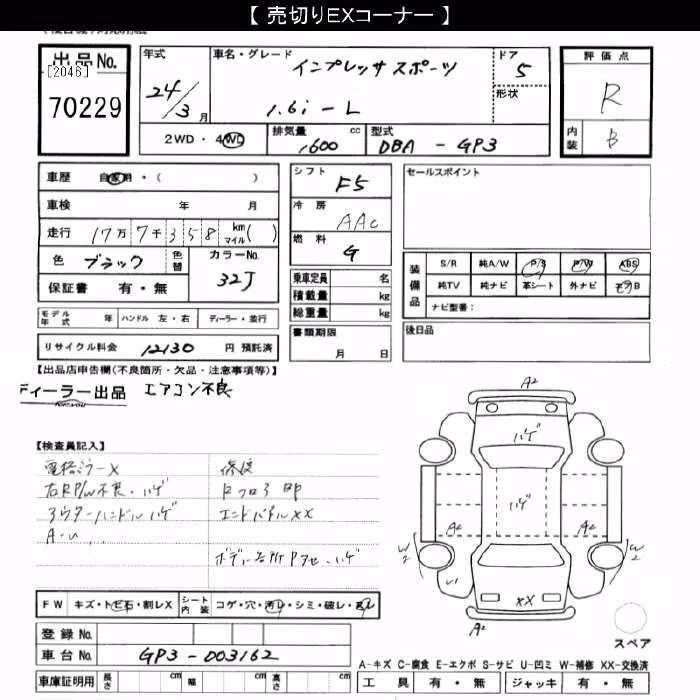 【 売切りEXコーナー 】
出品No. 年式 車名・グレード ドア 評価点
[2046] インプレッサ スポーツ 5
70229 24/3 月 1.6i-L 形状 R
2WD・4WD 排気量 1,600 cc 型式 DBA - GP3 内装 B
車歴 自家用・( ) シフト F5 セールスポイント
車検 年 月 冷房 AAC
走行 17万7千358 km マイル( )
燃料 G
色 ブラック 色替 カラーNo. 32J
保証書 有・無
装備品 S/R 純A/W P/S P/W ABS
乗車定員 名 純TV 純ナビ 革シート 外ナビ エアB
積載量 kg ナビ型番:
総重量 kg
モデル年式 年 ハンドル 左・右 ディーラー・並行
書類期限 後日品
リサイクル料金 12130 円 預託済 月 日
【出品店申告欄(不良箇所・欠品・注意事項等)】
ディーラー出品 エアコン不良
A2
ハゲ
【検査員記入】
電格ミラーX 修復
右RP/W不良・ハゲ Rフロア 凹
アウターハンドルハゲ エンドパネルXX
A・U
ボディー各所Pカセ・ハゲ
ハゲ
A2 A2
W2 W2
U1
XX
A2
スペア
FW キズ・トビ石・割レX シート内装 コゲ・穴・汚レ・シミ・破レ・スレ
登録No.
車台No. GP3-003162
A-キズ C-腐食 E-エクボ S-サビ U-凹ミ W-補修 XX-交換済
車庫証明用 長さ cm 幅 cm 高さ cm 工具 有・無 ジャッキ 有・無